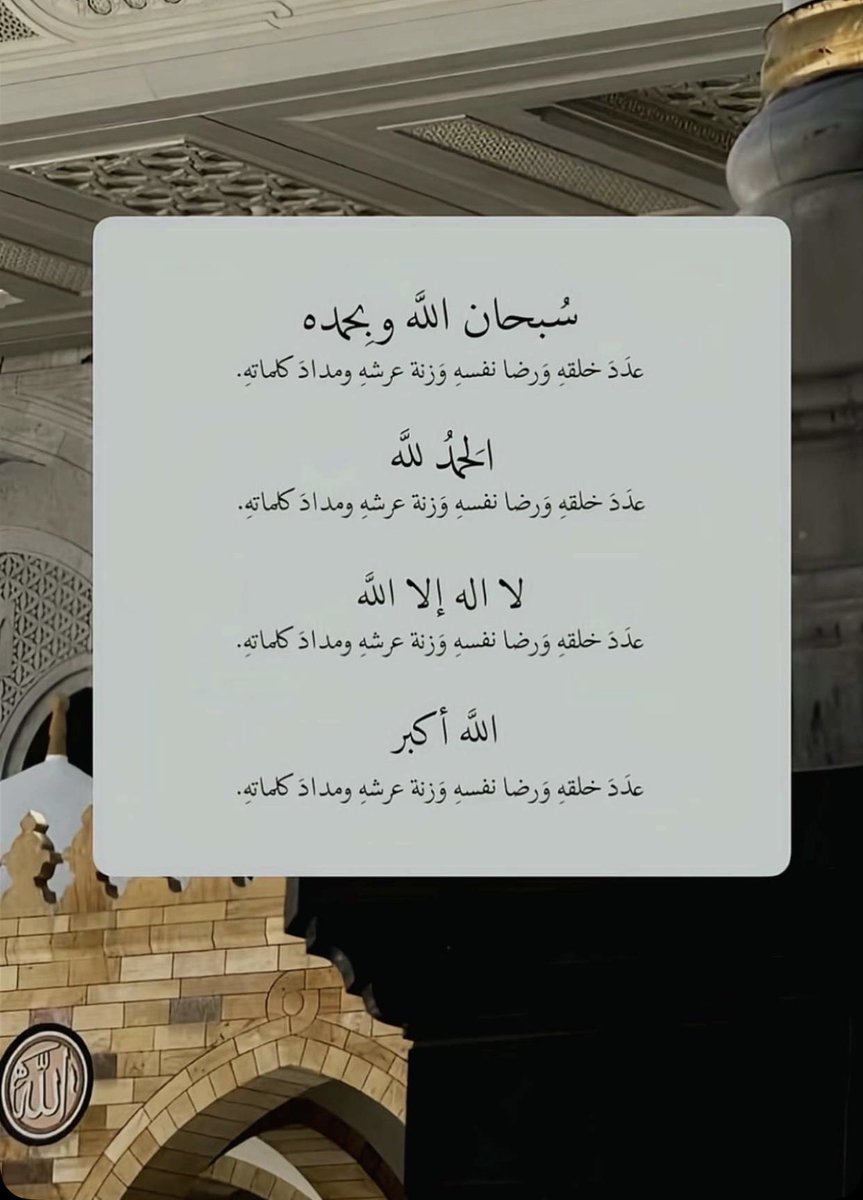 سُبحان اللَّه وبِحمده
عدَدَ خلقهِ وَرضا نفسهِ وَزنة عرشهِ ومدادَ كلماتهِ.
الَحمدُ للَّه
عدَدَ خلقهِ وَرضا نفسهِ وَزنة عرشهِ ومدادَ كلماتهِ.
لا اله إلا اللَّه
عدَدَ خلقهِ وَرضا نفسهِ وَزنة عرشهِ ومدادَ كلماتهِ.
اللَّه أكبر
عدَدَ خلقهِ وَرضا نفسهِ وَزنة عرشهِ ومدادَ كلماتهِ.
الله